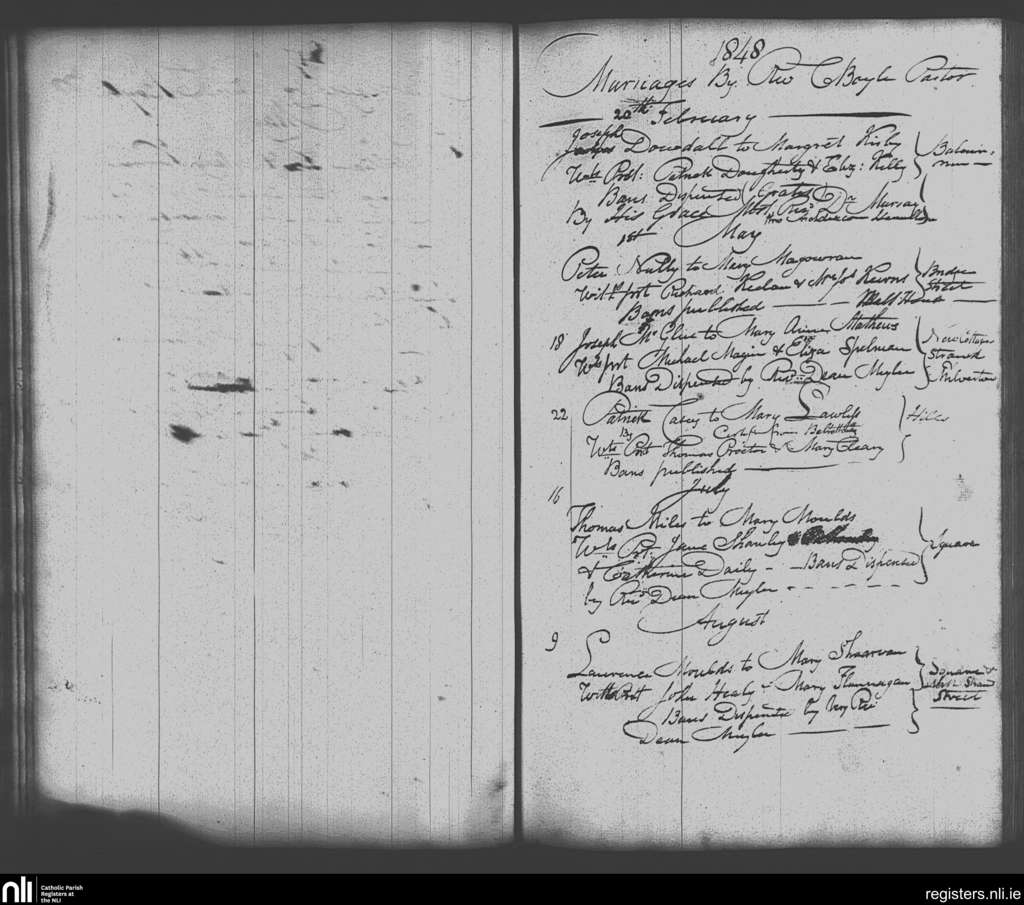 1848
Marriages By Rev C Boyle Pastor
20th February
Joseph Dowdall to Margret Kirby
Wits Prst: Patrick Dougherty & Eliz: Kelly
Bans Dispensed Gratis
By His Grace Most Revd Dr Murray
1st May
Peter Nally to Mary Magowran
Witts prst Richard Keelan & Kearns
Bridge Street
Bans published
18 Joseph McGlue to Mary Mathews
Wits prst Michael Magin & Eliza Spelman
New Cottage
Strand
Bans Dispensed by Revd Dean Meyler
22 Patrick Casey to Mary Lawless
By Certife from
Hills
Wits Prst Thomas Proctor & Mary Cleary
Bans published
July
16
Thomas Miles to Mary Moulds
Wits Prst: Jane Shanley
Square
& Catherine Daily - Bans Dispensed
by Revd Dean Meyler
August
9
Lawrence Moulds to Mary
Witts Prst John Healy - Mary Flannagan
Square &
Strand
Street
Bans Dispensed by Very Rev
Dean Meyler
nli
Catholic Parish
Registers at
the NLI
registers.nli.ie